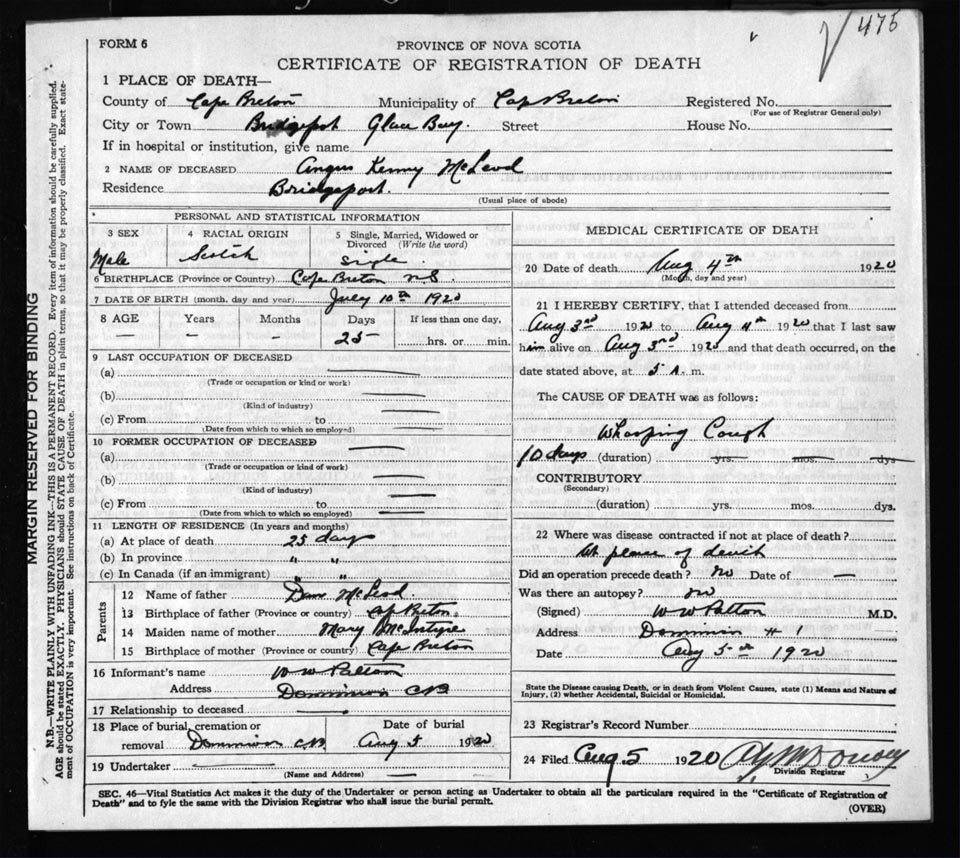 475
FORM 6
PROVINCE OF NOVA SCOTIA
CERTIFICATE OF REGISTRATION OF DEATH
1 PLACE OF DEATH—
County of Cape Breton Municipality of Cape Breton Registered No.
(For use of Registrar General only)
City or Town Bridgeport Glace Bay Street House No.
If in hospital or institution, give name
2 NAME OF DECEASED Angus Kenny McLeod
Residence Bridgeport.
(Usual place of abode)
PERSONAL AND STATISTICAL INFORMATION
3 SEX 4 RACIAL ORIGIN 5 Single, Married, Widowed or Divorced (Write the word)
Male Scotch Single
6 BIRTHPLACE (Province or Country) Cape Breton N.S.
7 DATE OF BIRTH (month, day and year) July 10th 1920
8 AGE Years Months Days If less than one day,
— — — 25 hrs. or min.
9 LAST OCCUPATION OF DECEASED
(a)
(Trade or occupation or kind or work)
(b)
(Kind of industry)
(c) From to
(Date from which to which so employed)
10 FORMER OCCUPATION OF DECEASED
(a)
(Trade or occupation or kind of work)
(b)
(Kind of industry)
(c) From to
(Date from which to which so employed)
11 LENGTH OF RESIDENCE (In years and months)
(a) At place of death 25 days
(b) In province " "
(c) In Canada (if an immigrant) " "
Parents
12 Name of father Dan McLeod.
13 Birthplace of father (Province or country) Cap Breton
14 Maiden name of mother Mary B McIntyre
15 Birthplace of mother (Province or country) Cape Breton
16 Informant's name W W Patton
Address Dominion CB
17 Relationship to deceased
18 Place of burial, cremation or removal Dominion CB. Date of burial Aug 5 1920
19 Undertaker
(Name and Address)
MEDICAL CERTIFICATE OF DEATH
20 Date of death Aug 4th 1920
(Month, day and year)
21 I HEREBY CERTIFY, that I attended deceased from
Aug 3rd 1920 to Aug 4th 1920 that I last saw
him alive on Aug 3rd 1920 and that death occurred, on the
date stated above, at 5 A. m.
The CAUSE OF DEATH was as follows:
Whooping Cough
10 days (duration) yrs. mos. dys
CONTRIBUTORY
(Secondary)
(duration) yrs. mos. dys.
22 Where was disease contracted if not at place of death?
At place of death
Did an operation precede death? no Date of —
Was there an autopsy? no
(Signed) W W Patton M.D.
Address Dominion # 1
Date Aug 5th 1920
State the Disease causing Death, or in death from Violent Causes, state (1) Means and Nature of
Injury, (2) whether Accidental, Suicidal or Homicidal.
23 Registrar's Record Number
24 Filed Aug 5 1920
Division Registrar
SEC. 46—Vital Statistics Act makes it the duty of the Undertaker or person acting as Undertaker to obtain all the particulars required in the "Certificate of Registration of
Death" and to fyle the same with the Division Registrar who shall issue the burial permit.
(OVER)
MARGIN RESERVED FOR BINDING
N.B.—WRITE PLAINLY WITH UNFADING INK—THIS IS A PERMANENT RECORD. Every item of information should be carefully supplied.
AGE should be stated EXACTLY. PHYSICIANS should STATE CAUSE OF DEATH in plain terms, so that it may be properly classified. Exact state-
ment of OCCUPATION is very important. See instructions on back of Certificate.